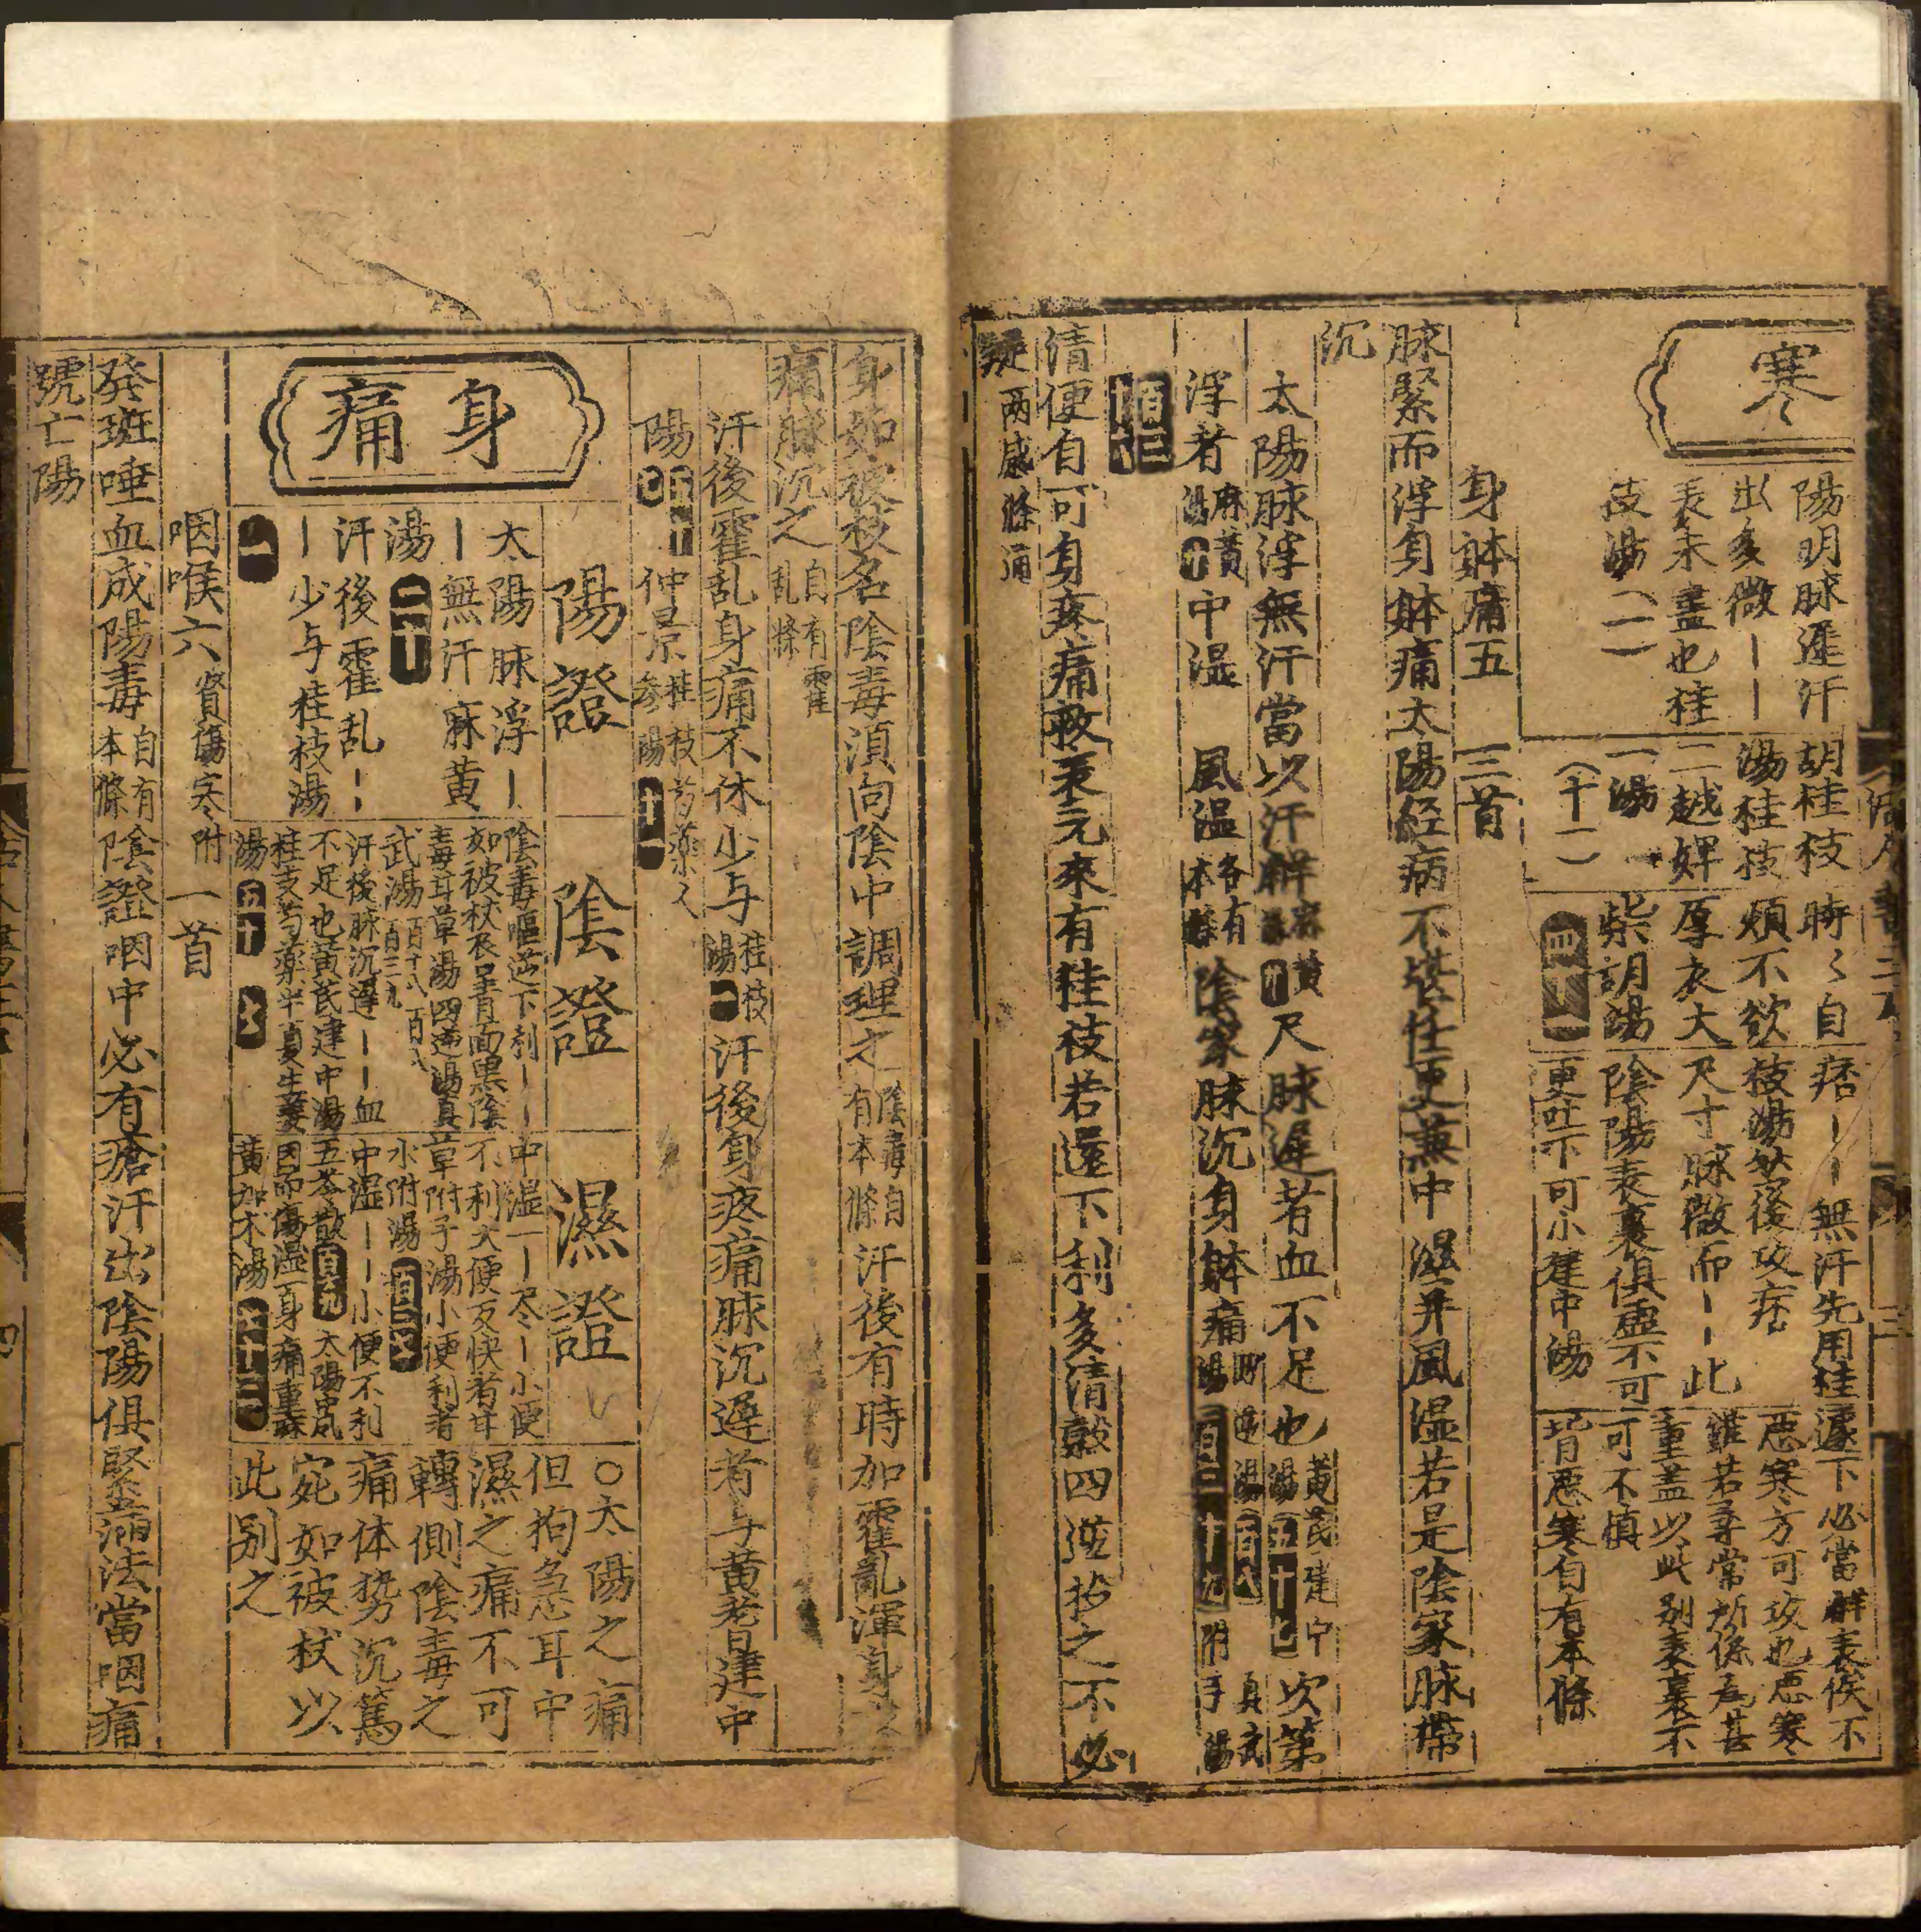 寒
陽明脉遲汗
出多微丨丨
表未盡也桂
枝湯（一）
胡桂枝
湯桂枝
二越婢
一湯
（十一）
時〻自
煩不欲
厚衣大
柴胡湯
痞丨丨無汗先用桂
枝湯然後攻痞
尺寸脉微而丨丨此
陰陽表裏俱虛不可
更吐下可小建中湯
遽下必當解表候不
惡寒方可攻也惡寒
雖若尋常所係為甚
重盖以此别表裏不
可不慎
背惡寒自有本條
身躰痛五 三首
脉緊而浮身躰痛太陽經病不堪任更兼中濕并風湿若是陰家脉帶
沉
太陽脉浮無汗當以汗解麻黄
尺脉遲若血不足也黄芪建中湯五十七次第
浮者麻黄湯中湿 風温各有本條陰家脉沉身躰痛四逆湯百八 真武湯百三十九附子湯
百三十八
清便自可身疼痛救表元來有桂枝若還下利多清穀四逆抄之不必
疑两感條通
身如被杖名陰毒湏向陰中調理之陰毒自有本條汗後有時加霍亂渾身
痛脉沉之自有霍乱條
汗後霍乱身痛不休少与桂枝湯一汗後身疼痛脉沉遲者与黄耆建中
湯五十七仲景桂枝芍藥人参湯
身痛
陽證
陰證
濕證
太陽脉浮丨
丨無汗麻黄
湯二十
汗後霍乱丨丨
丨少与桂枝湯
一
陰毒嘔逆下利丨丨
如被杖表呈青面黒陰
毒甘草湯四逆湯真
武湯百十八 百八 百三九
汗後脉沉遲丨丨血
不足也黄芪建中湯
桂支芍藥半夏生姜
湯五十 六
中湿丨丨尽丨小便
不利大便反快者甘
草附子湯小便利者
术附湯
中湿丨丨小便不利
五苓散百九 太陽中風
因而傷湿身痛重麻
黄加术湯
○太陽之痛
但拘急耳中
濕之痛不可
轉側陰毒之
痛体势沉篤
宛如被杖以
此别之
咽喉六賁傷寒附 一首
發斑唾血成陽毒自有本條陰證咽中必有瘡汗出陰陽俱緊滿法當咽痛
號亡陽